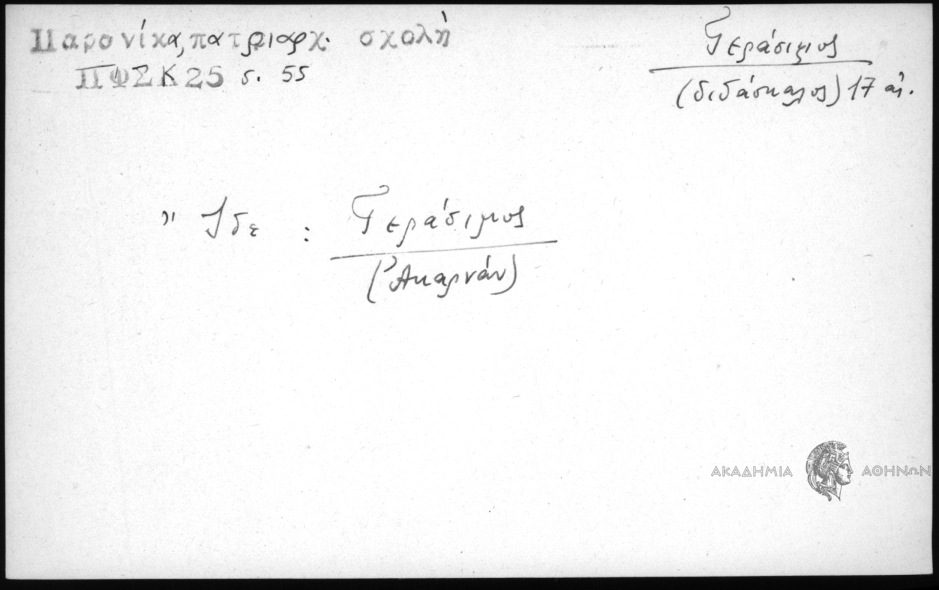 Παρονίκα, πατριαρχ. σχολὴ
ΠΦΣΚ 25 σ. 55
Γεράσιμος
(διδάσκαλος) 17 αἰ.
Ἴδε : Γεράσιμος
(Ἀκαρνάν)
ΑΚΑΔΗΜΙΑ ΑΘΗΝΩΝ